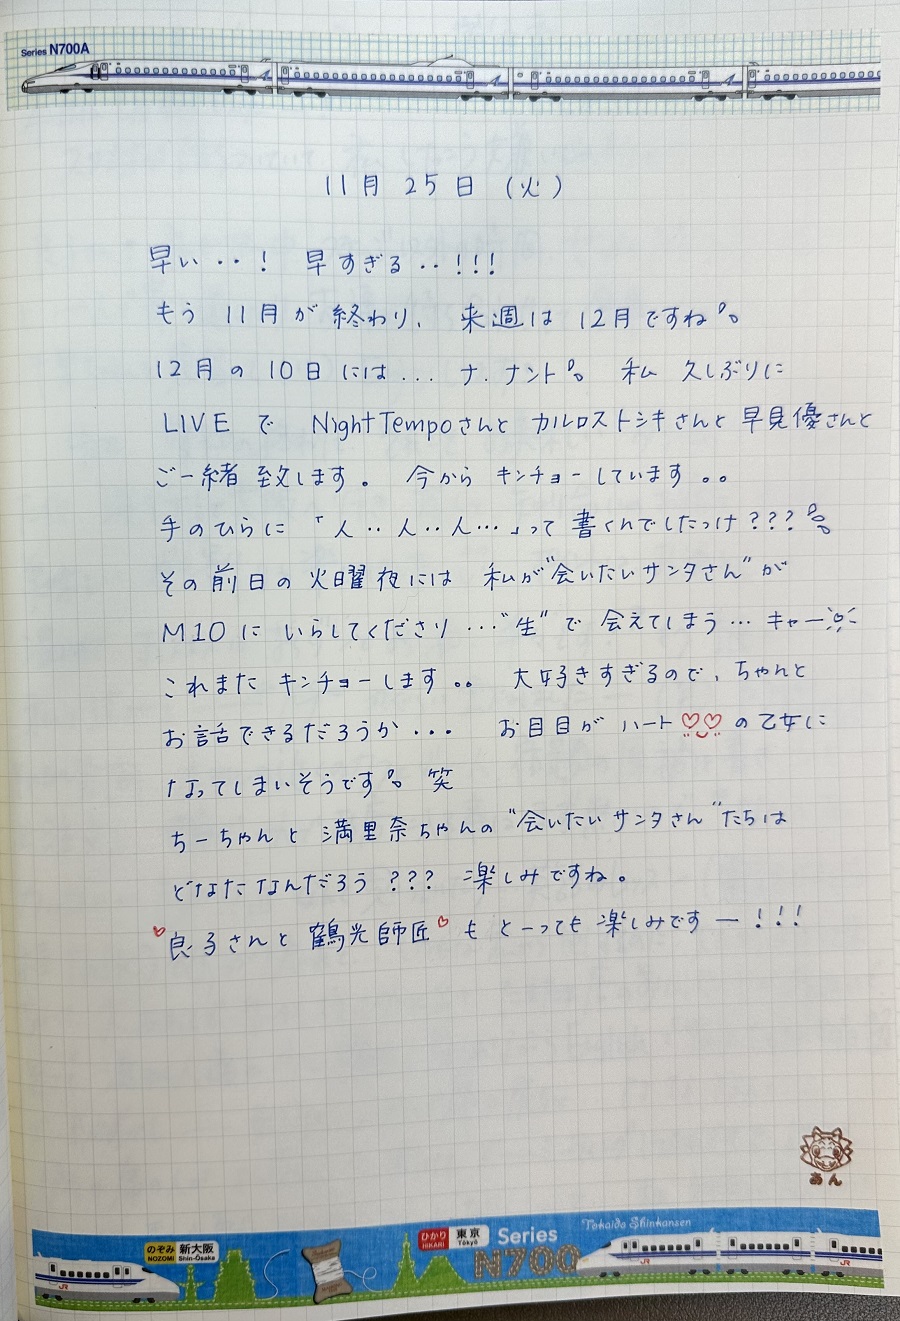 Series N700A
11月 25日 (火)
早い‥! 早すぎる‥!!!
もう 11月が 終わり、 来週は 12月ですね。
12月の 10日 には... ナ、ナント。 私 久しぶりに
LIVE で Night Tempoさんと カルロストシキさんと 早見優さんと
ご一緒 致します。 今から キンチョーしています。。
手のひらに 「人‥人‥人…」って 書くんでしたっけ???
その前日の 火曜夜には 私が"会いたいサンタさん"が
M10に いらしてくださり ..."生"で 会えてしまう… キャー
これまた キンチョーします。。 大好きすぎるので、ちゃんと
お話できるだろうか・・・ お目目が ハート♡♡の乙女に
なってしまいそうです。 笑
ちーちゃんと 満里奈ちゃんの "会いたいサンタさん"たちは
どなたなんだろう ??? 楽しみですね。
♡良子さんと 鶴光師匠♡も とーっても 楽しみですー!!!
あん
のぞみ 新大阪
NOZOMI Shin-Osaka
ひかり 東京
HIKARI Tōkyō
Series
N700
Tokaido Shinkansen
JR
JR
JR